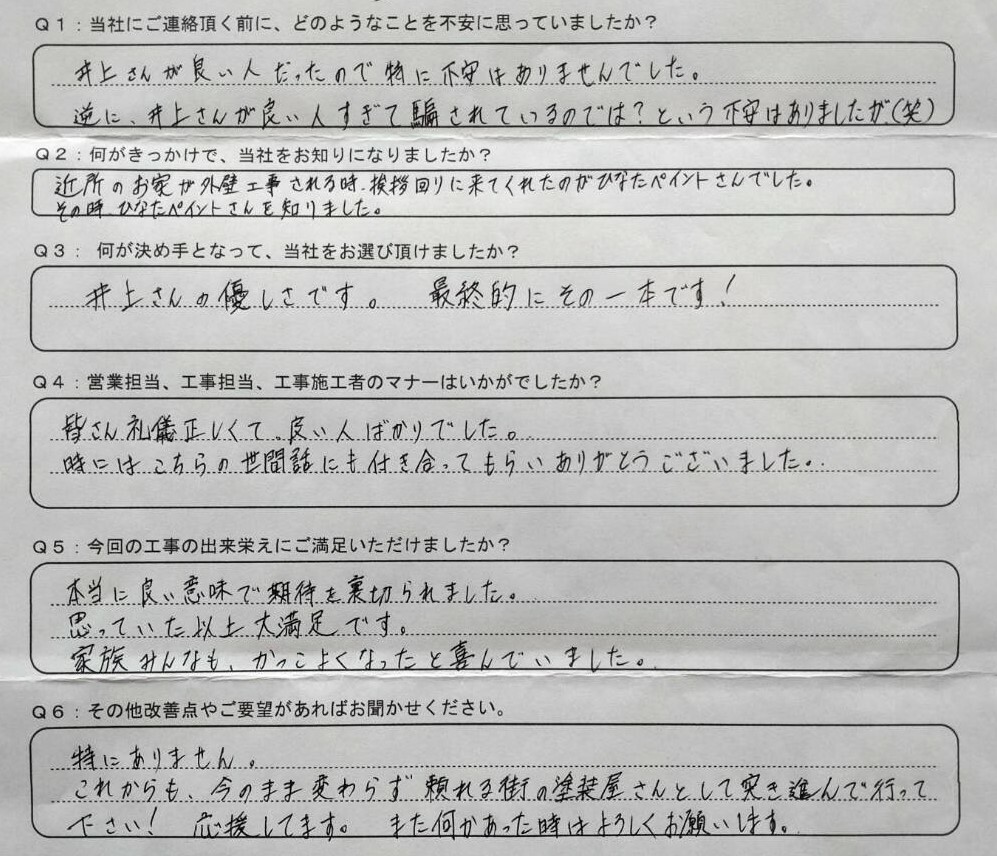 Q1:当社にご連絡頂く前に、どのようなことを不安に思っていましたか?
井上さんが良い人だったので特に不安はありませんでした。
逆に、井上さんが良い人すぎて騙されているのでは?という不安はありましたが(笑)
Q2:何がきっかけで、当社をお知りになりましたか?
近所のお家が外壁工事される時、挨拶回りに来てくれたのがひなたペイントさんでした。
その時、ひなたペイントさんを知りました。
Q3: 何が決め手となって、当社をお選び頂けましたか?
井上さんの優しさです。 最終的にその一本です!
Q4:営業担当、工事担当、工事施工者のマナーはいかがでしたか?
皆さん礼儀正しくて、良い人ばかりでした。
時にはこちらの世間話にも付き合ってもらいありがとうございました。
Q5:今回の工事の出来栄えにご満足いただけましたか?
本当に良い意味で期待を裏切られました。
思っていた以上大満足です。
家族みんなも、かっこよくなったと喜んでいました。
Q6:その他改善点やご要望があればお聞かせください。
特にありません。
これからも、今のまま変わらず頼れる街の塗装屋さんとして突き進んで行って
下さい! 応援してます。 また何かあった時はよろしくお願いします。